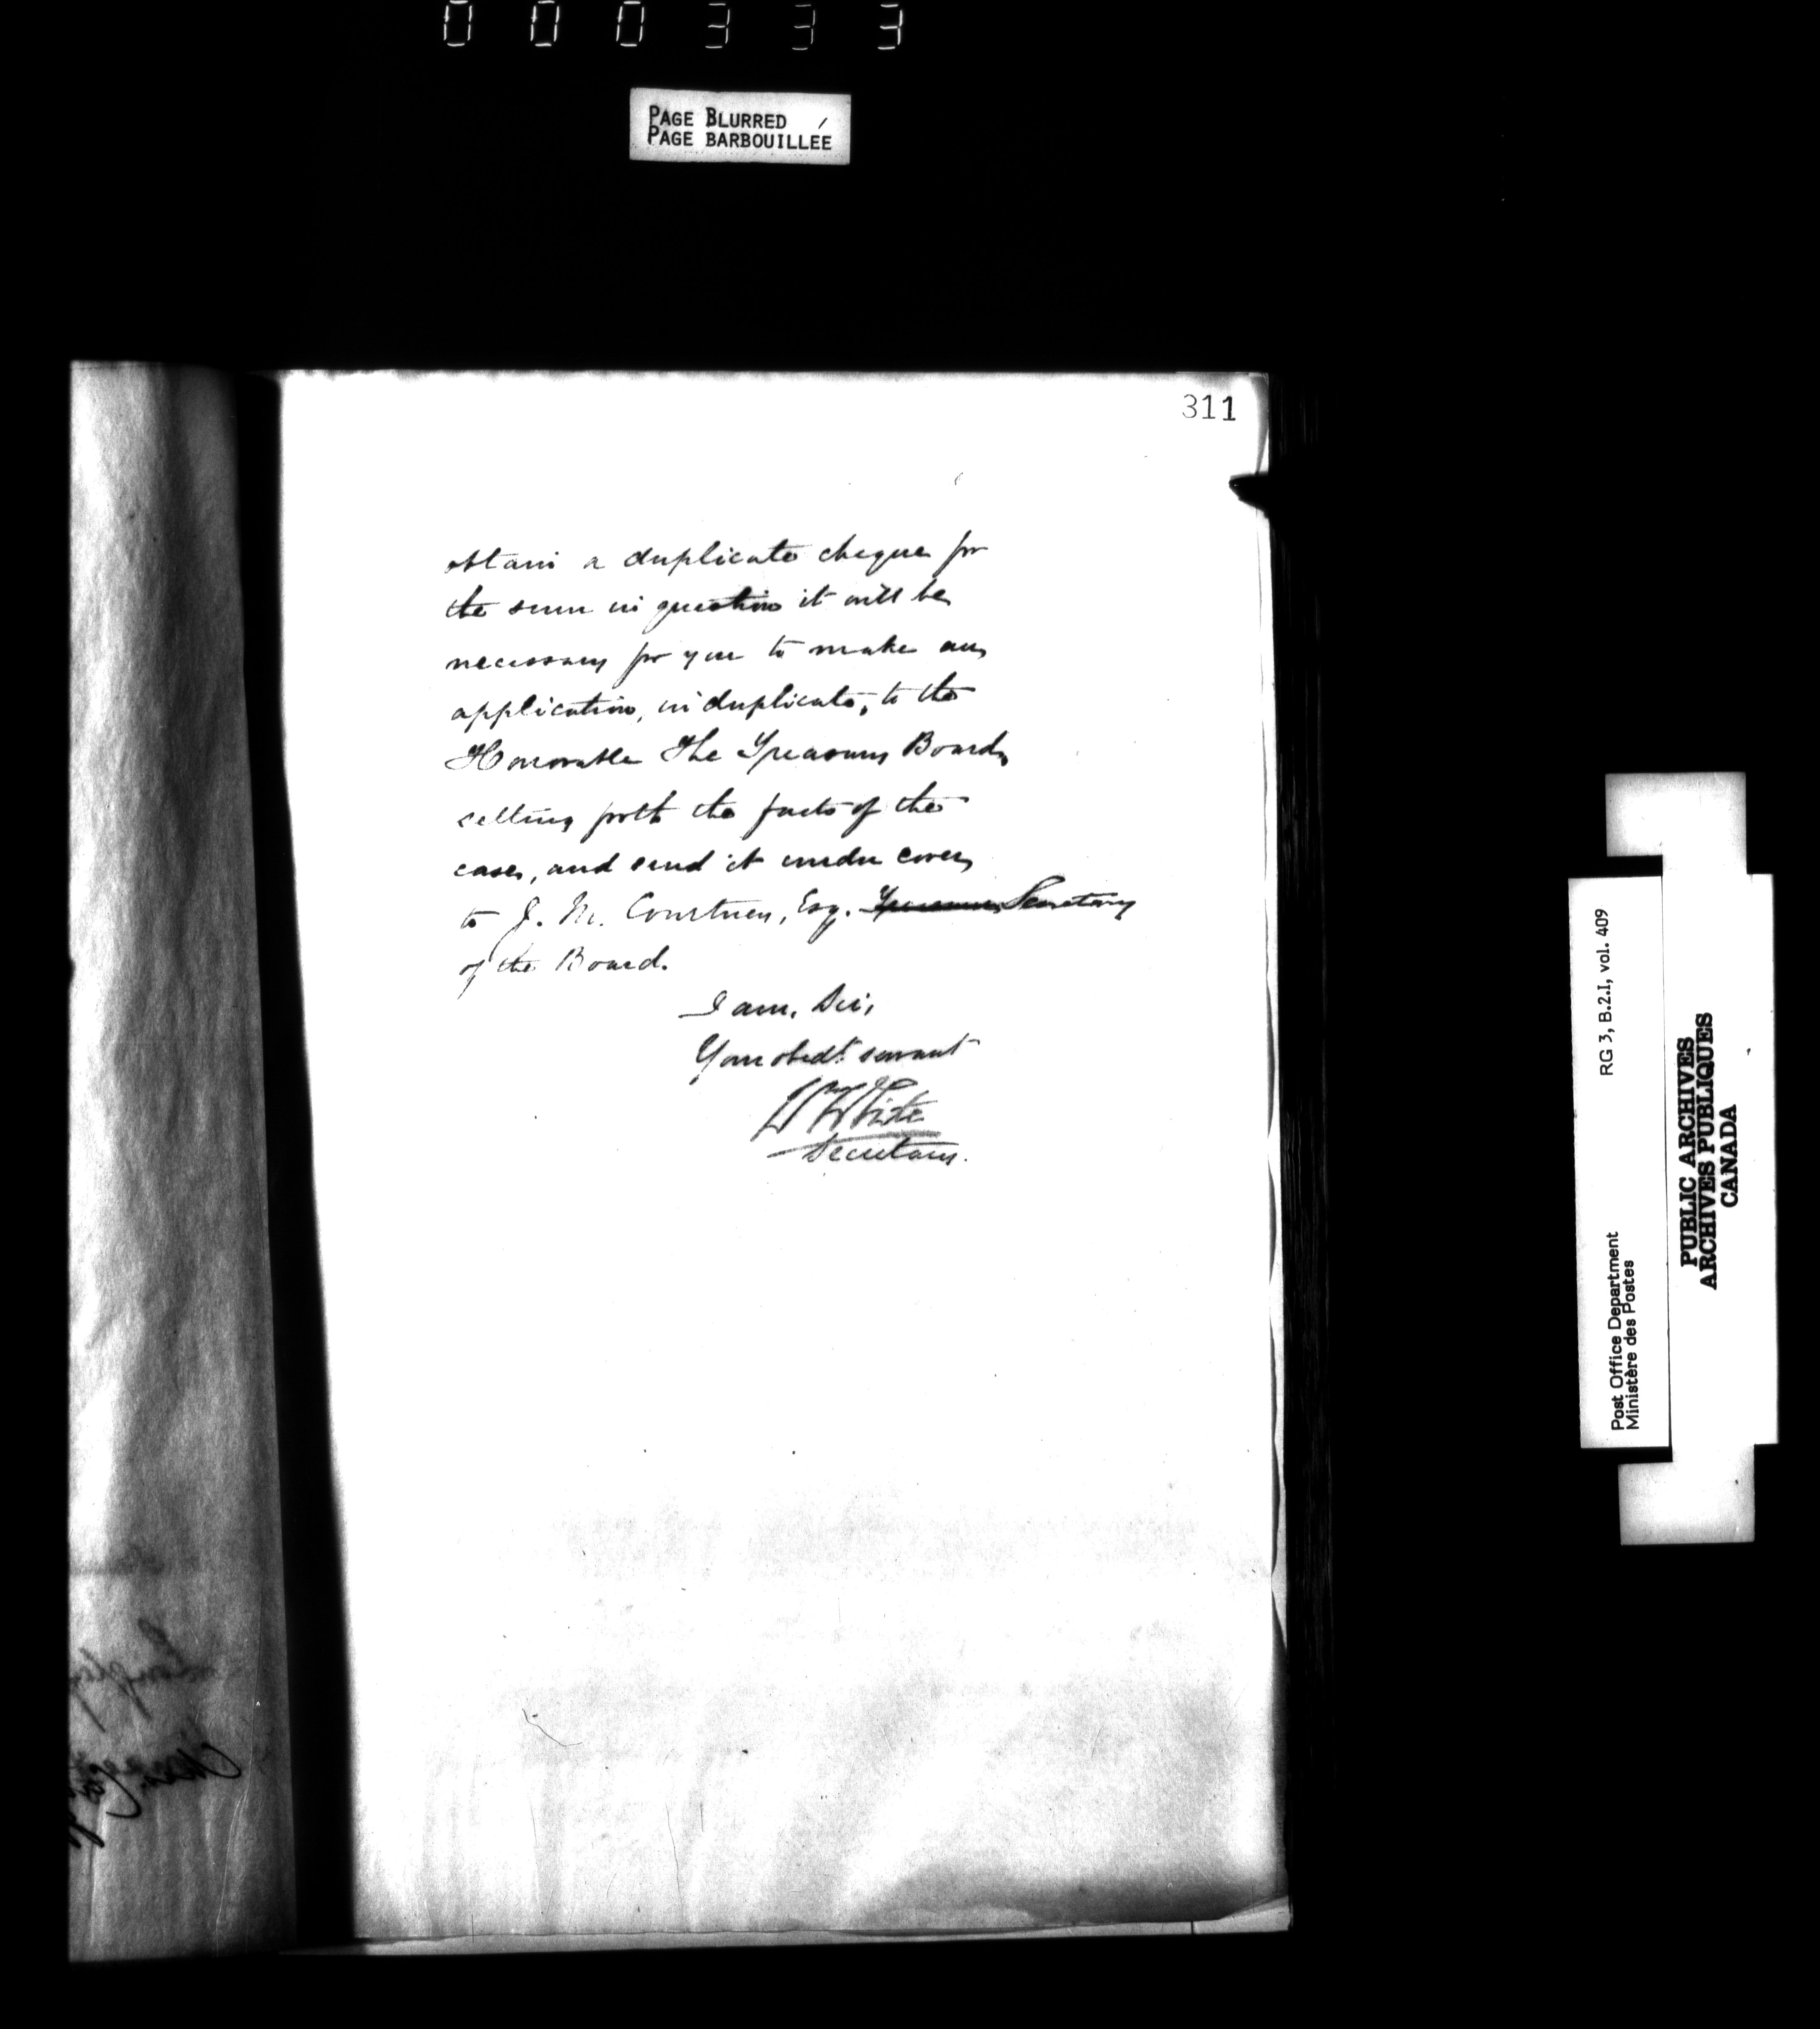 000333
PAGE BLURRED
PAGE BARBOUILLÉE
311
obtain a duplicate cheque for
the sum in question it will be
necessary for you to make an
application, in duplicate, to the
Honorable The Treasury Board,
setting forth the facts of the
case, and send it under cover
to J. M. Courtney, Esq. Secretary
of the Board.
I am, Sir,
Your obedt servant
Wm White
Secretary.
RG 3, B.2.I, vol. 409
Post Office Department
Ministère des Postes
PUBLIC ARCHIVES
ARCHIVES PUBLIQUES
CANADA